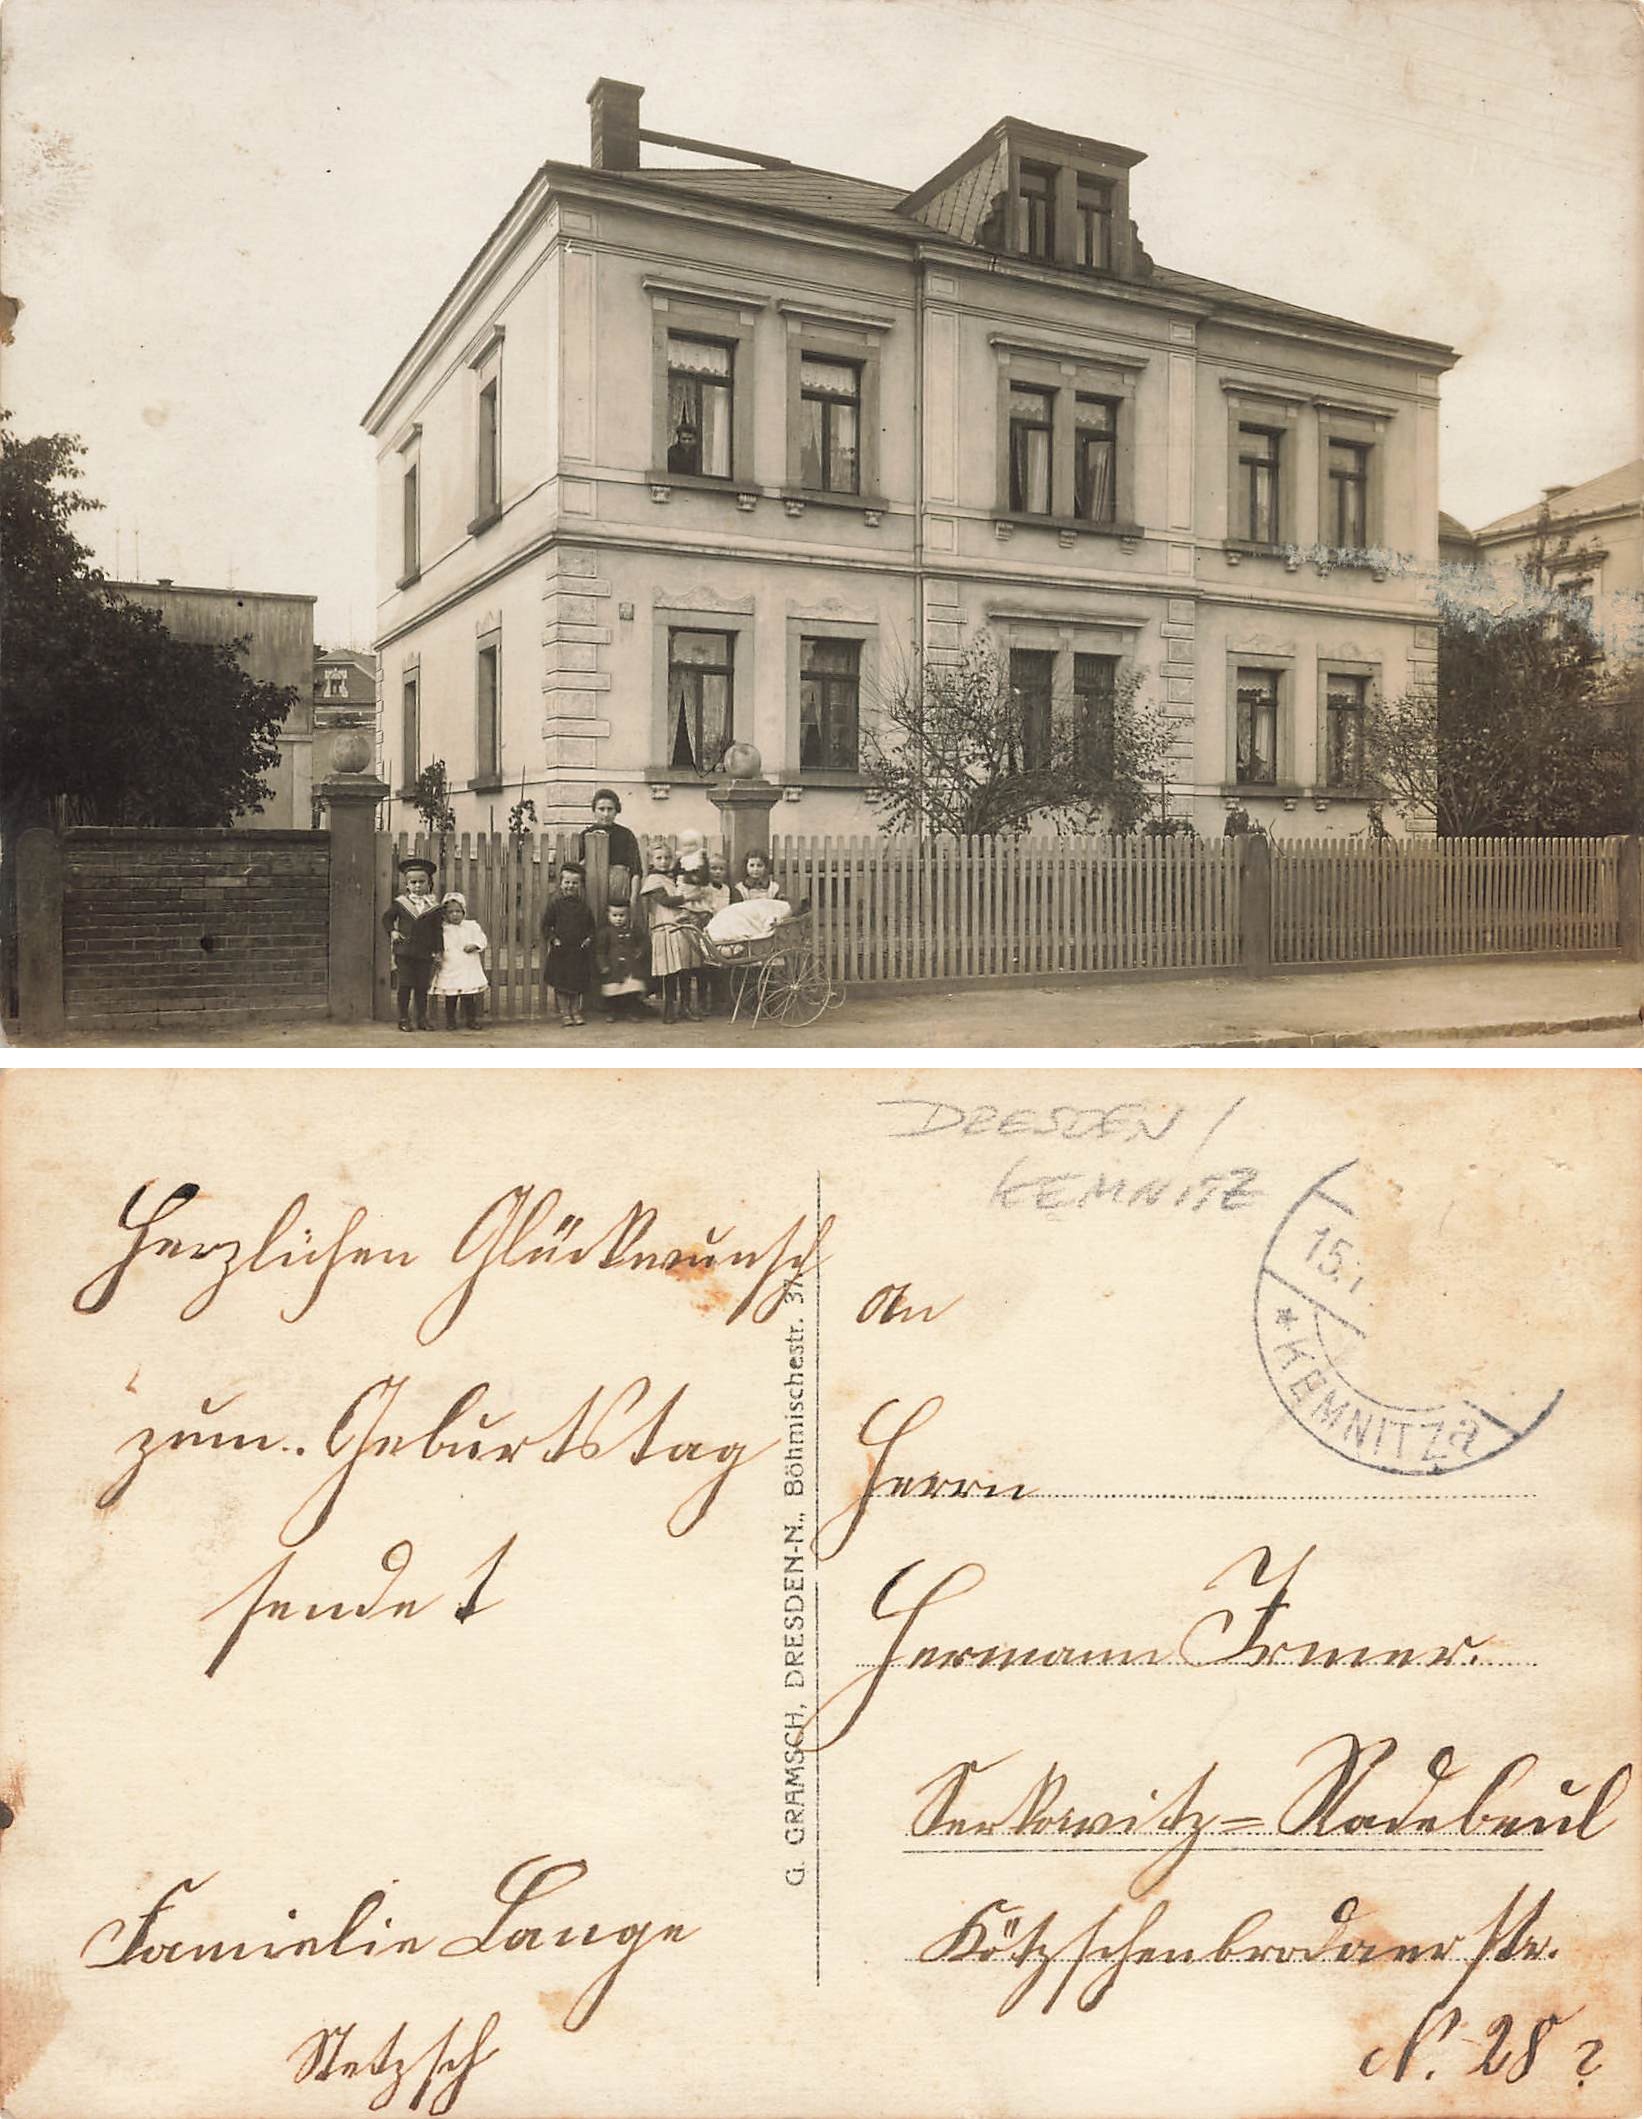 DRESDEN /
KEMNITZ
15.
* KEMNITZ a
Herzlichen Glückwunsch
zum. Geburtstag
sendet
Familie Lange
Stetzsch
G. GRAMSCH, DRESDEN-N., Böhmischestr. 37.
An
Herrn
Hermann Irmer.
Serkowitz=Radebeul
Kötzschenbrodaer Str.
N. 28 ?